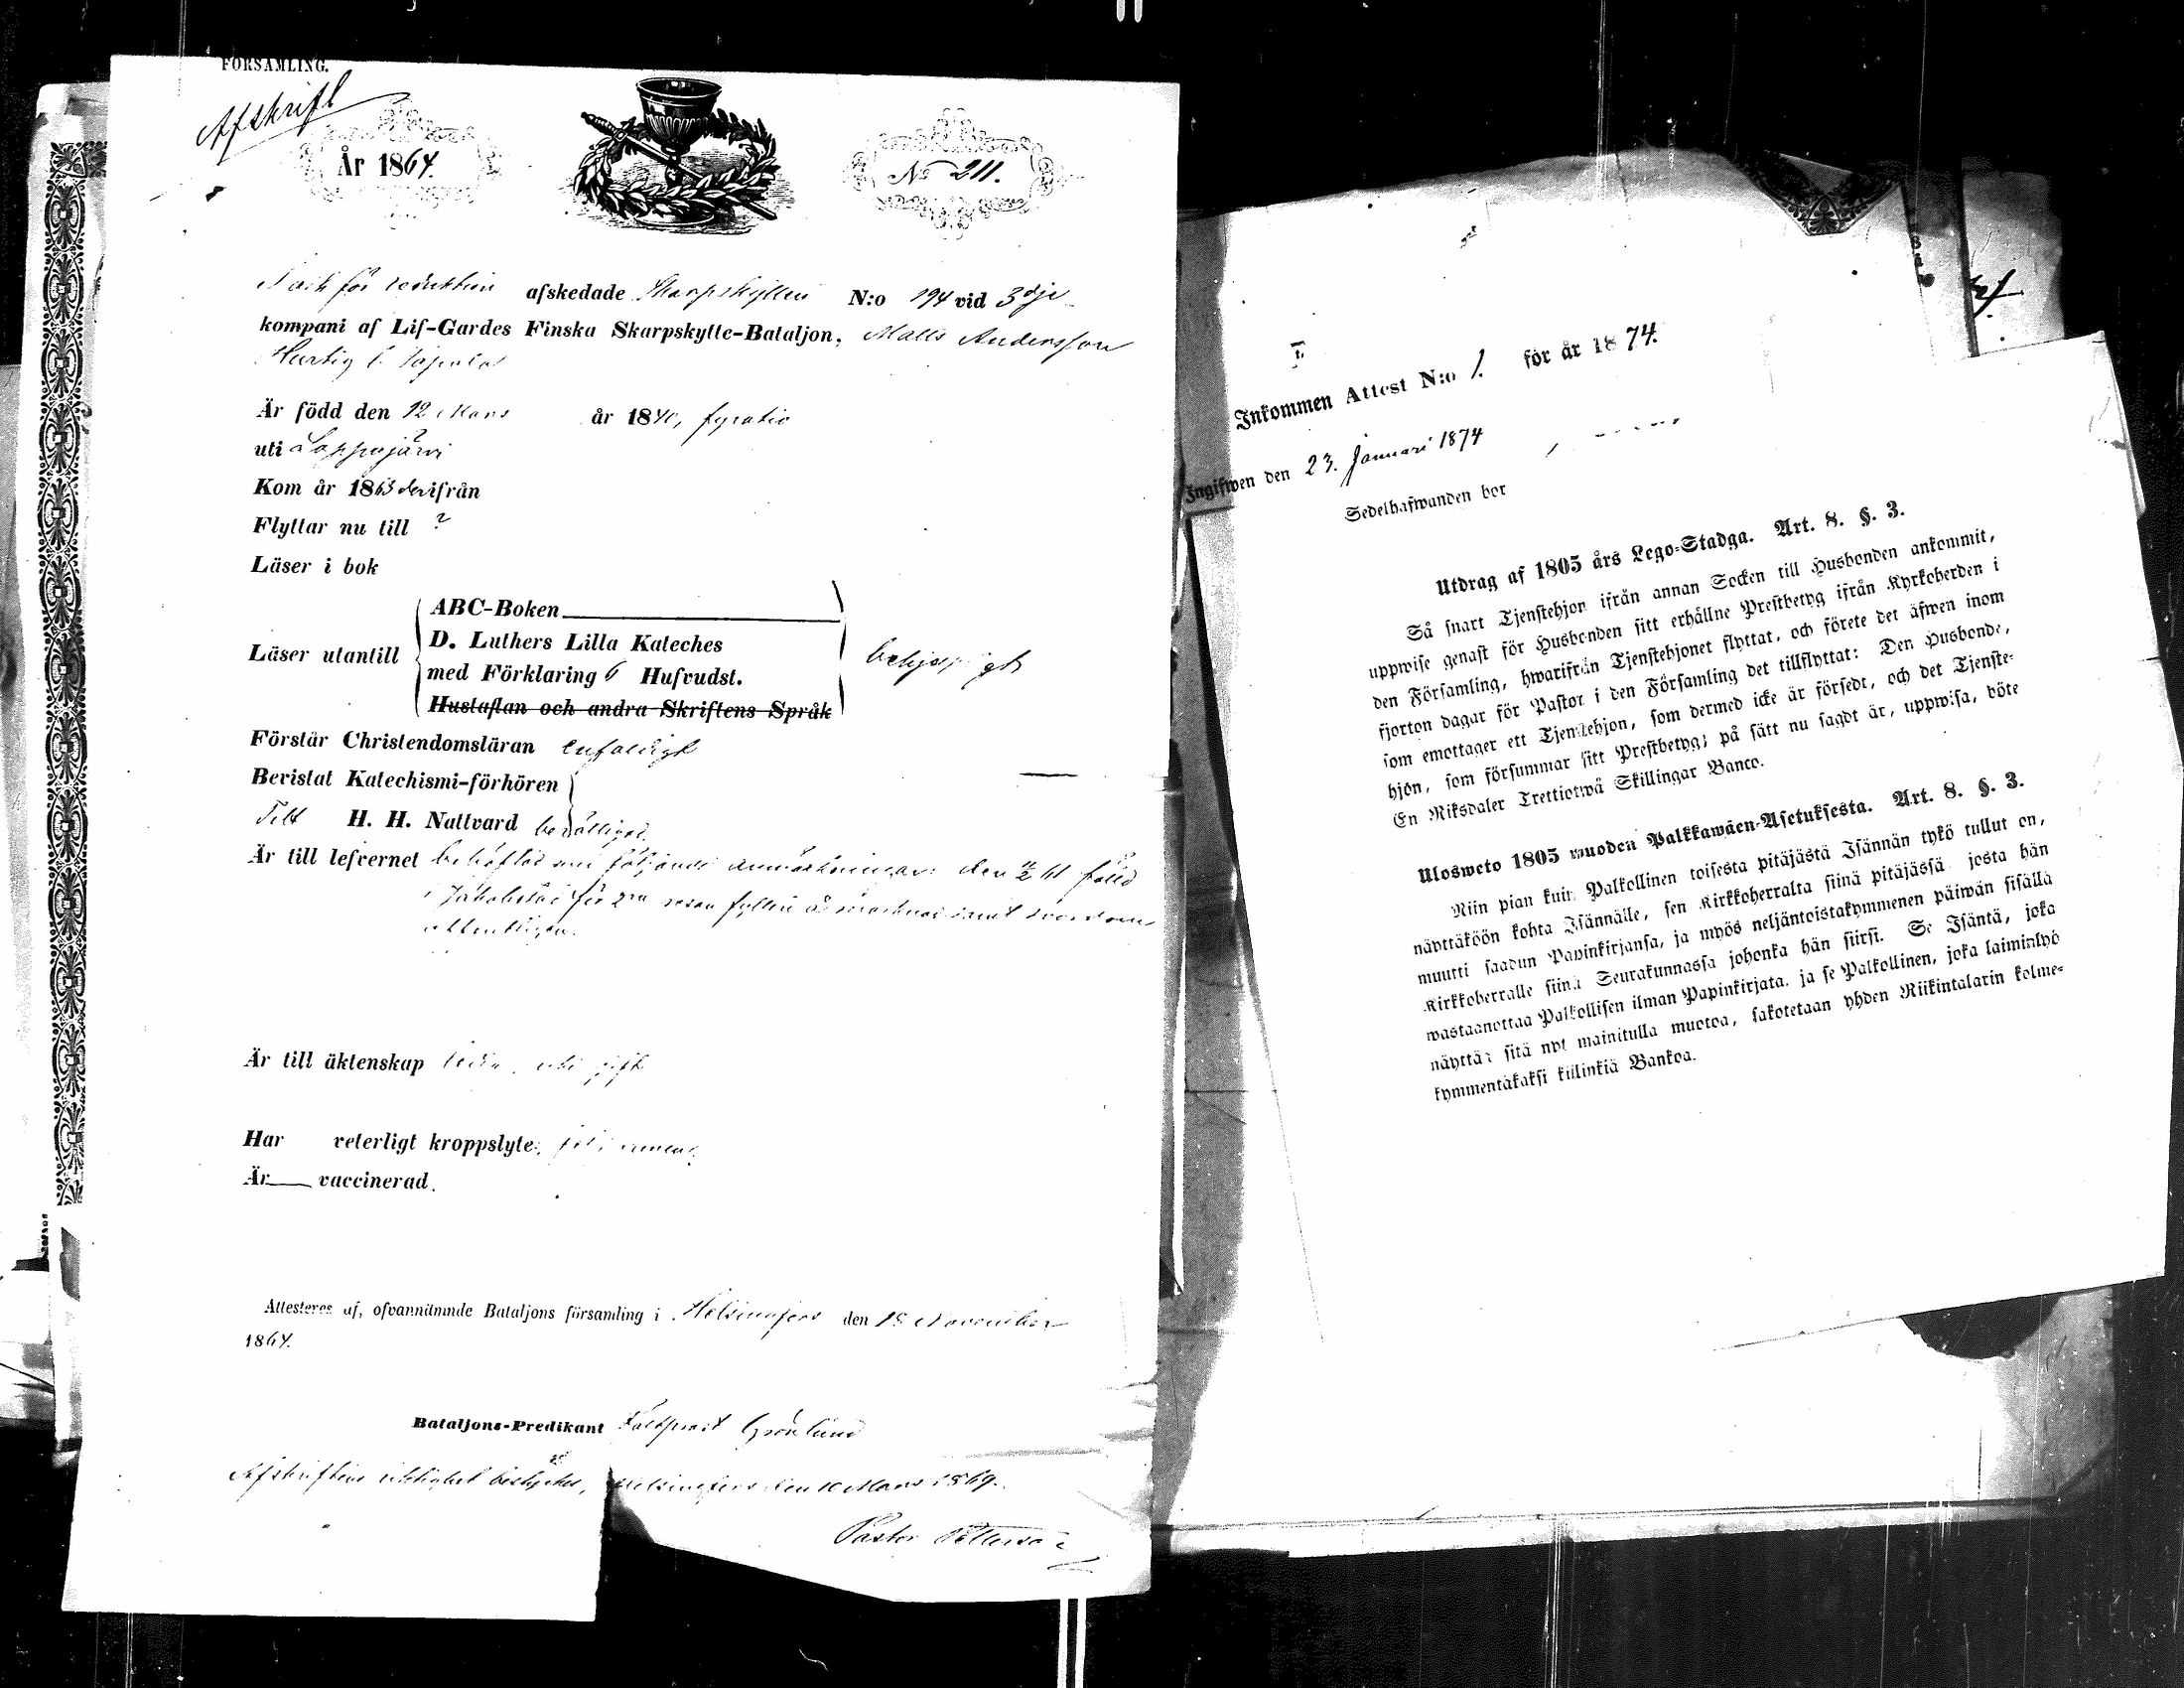 FÖRSAMLING.
Afskrift
År 1864.
No 211.
afskedade Skarpskytten N:o 194 vid 3dje
kompani af Lif-Gardes Finska Skarpskytte-Bataljon, Matts Andersson
Hurtig
Är född den 12 Mars år 1840, fyratio
uti Lappajärvi
Kom år 1863 derifrån
Flyttar nu till ?
Läser i bok
Läser utantill
ABC-Boken
D. Luthers Lilla Kateches
med Förklaring 6 Hufvudst.
Hustaflan och andra Skriftens Språk
Förstår Christendomsläran enfaldigt
Bevistat Katechismi-förhören
H. H. Nattvard
Är till lefvernet behäftad med följande anmärkningar: den fälld
i Jakobstad för 2ra resan fylleri å marknad samt
Är till äktenskap ledig, gift
Har veterligt kroppslyte,
Är vaccinerad.
Attesteras af, ofvannämnde Bataljons församling i Helsingfors den November
1864.
Bataljons-Predikant Fältprost Grönlund
Afskriftens riktighet Helsingfors den 10 Mars 1869.
Pastor
Inkommen Attest N:o 1. för år 1874.
Ingifwen den 23. Januari 1874
Sedelhafwanden bor
Utdrag af 1805 års Lego-Stadga. Art. 8. §. 3.
Så snart Tjenstehjon ifrån annan Socken till Husbonden ankommit,
uppwise genast för Husbonden sitt erhållne Prestbetyg ifrån Kyrkoherden i
den Församling, hwarifrån Tjenstehjonet flyttat, och förete det äfwen inom
fjorton dagar för Pastor i den Församling det tillflyttat: Den Husbonde,
som emottager ett Tjenstehjon, som dermed icke är försedt, och det Tjenste-
hjon, som försummar sitt Prestbetyg; på sätt nu sagdt är, uppwisa, böte
En Riksdaler Trettiotwå Skillingar Banco.
Ulosweto 1805 wuoden Palkkawäen-Asetuksesta. Art. 8. §. 3.
Niin pian kuin Palkollinen toisesta pitäjästä Isännän tykö tullut on,
näyttäköön kohta Isännälle, sen Kirkkoherralta siinä pitäjässä josta hän
muutti saadun Papinkirjansa, ja myös neljäntoistakymmenen päiwän sisällä
Kirkkoherralle siinä Seurakunnassa johonka hän siirsi. Se Isäntä, joka
wastaanottaa Palkollisen ilman Papinkirjata, ja se Palkollinen, joka laiminlyö
näyttää sitä nyt mainitulla muotoa, sakotetaan yhden Riikintalarin kolme-
kymmentäkaksi killinkiä Bankoa.